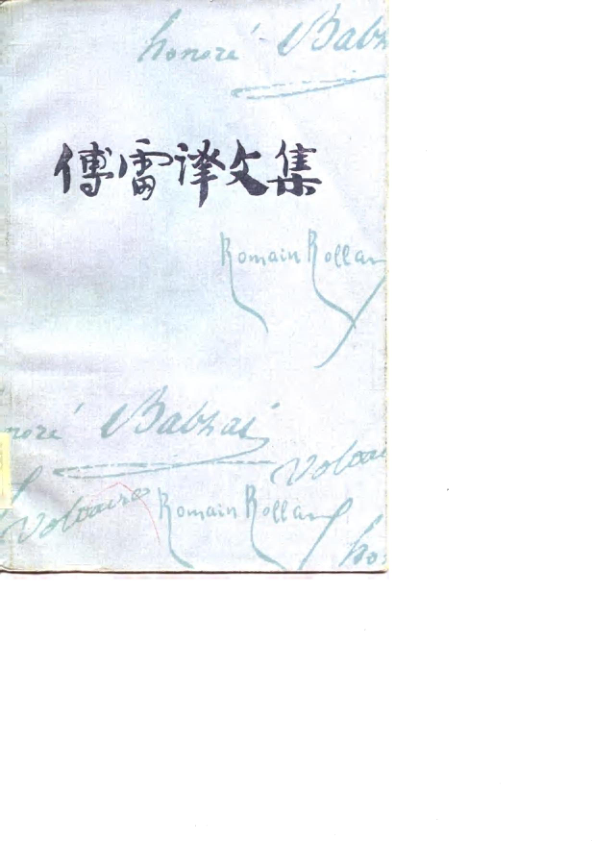 honoré Balz
傅雷译文集
Romain Rollan
noré Balzac
Voltai
Voltaire
Romain Rolland
ho